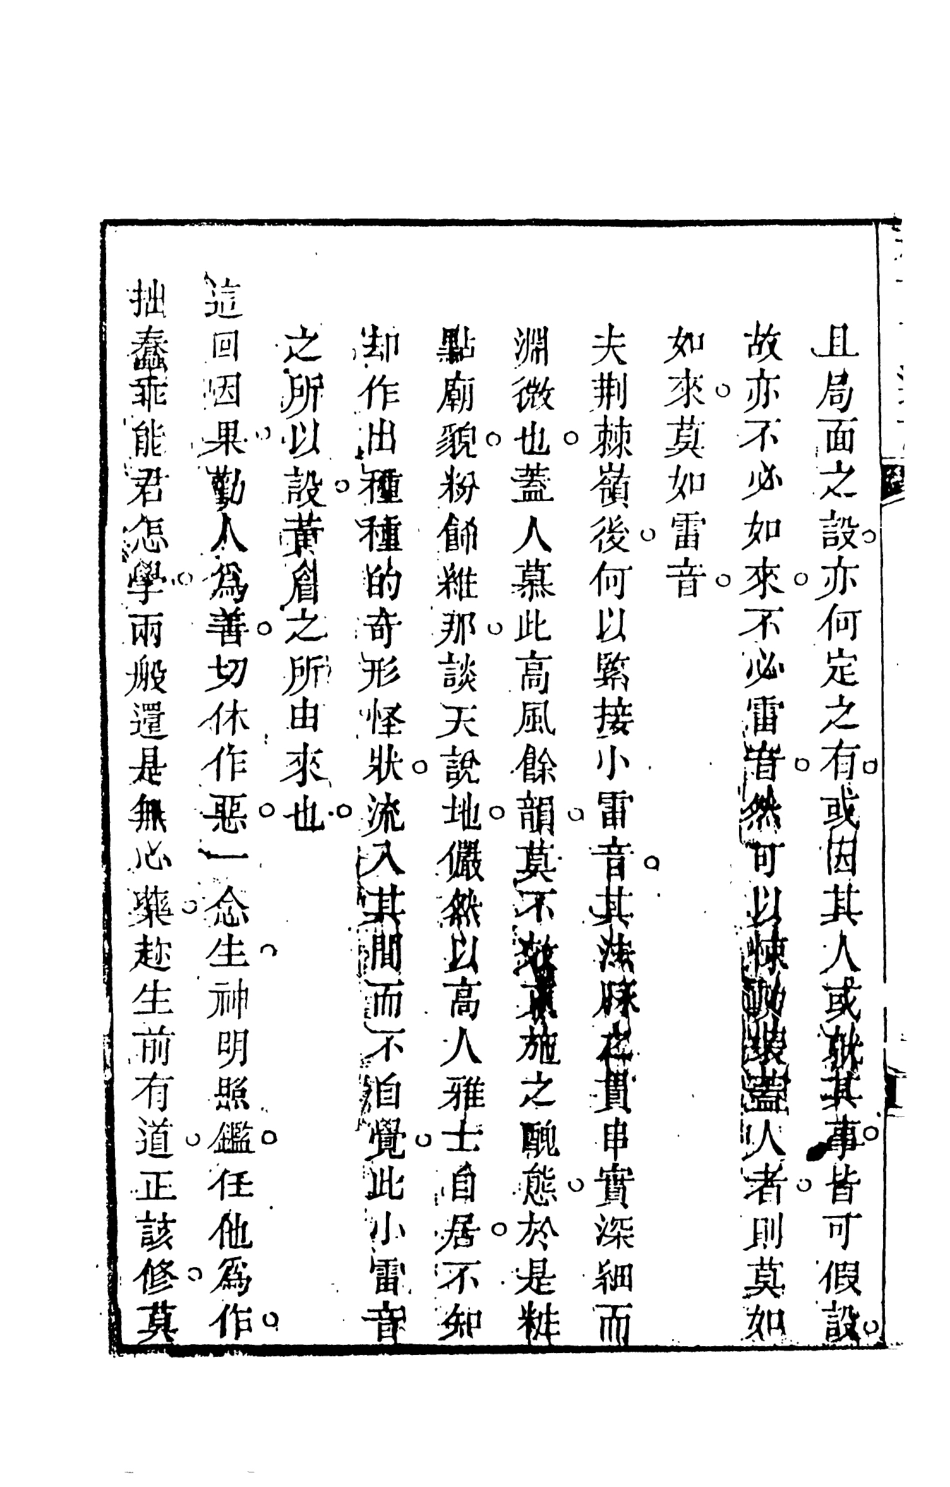 且局面之設亦何定之有或因其人或就其事皆可假設
故亦不必如來不必雷音然可以悚動裝蓋人者則莫如
如來莫如雷音
夫荆棘嶺後何以緊接小雷音其法脉之貫串實深細而
淵微也蓋人慕此高風餘韻莫不效其施之醜態於是粧
點廟貌粉餙維那談天說地儼然以高人雅士自居不知
却作出種種的奇形怪狀流入其間而不自覺此小雷音
之所以設黃眉之所由來也
這回因果勸人爲善切休作惡一念生神明照鑑任他爲作
拙蠢乖能君怎學兩般還是無心藥趂生前有道正該修莫